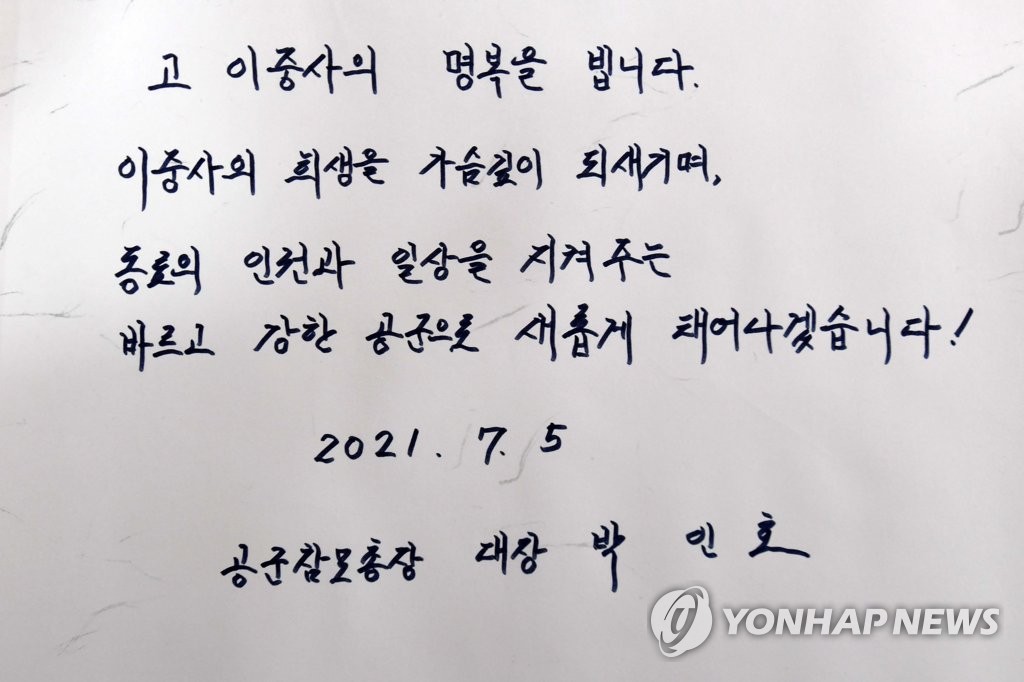 고 이중사의 명복을 빕니다.
이중사의 희생을 가슴깊이 되새기며,
동료의 인권과 일상을 지켜주는
바르고 강한 공군으로 새롭게 태어나겠습니다!
2021. 7. 5
공군참모총장 대장 박 인 호
YONHAP NEWS